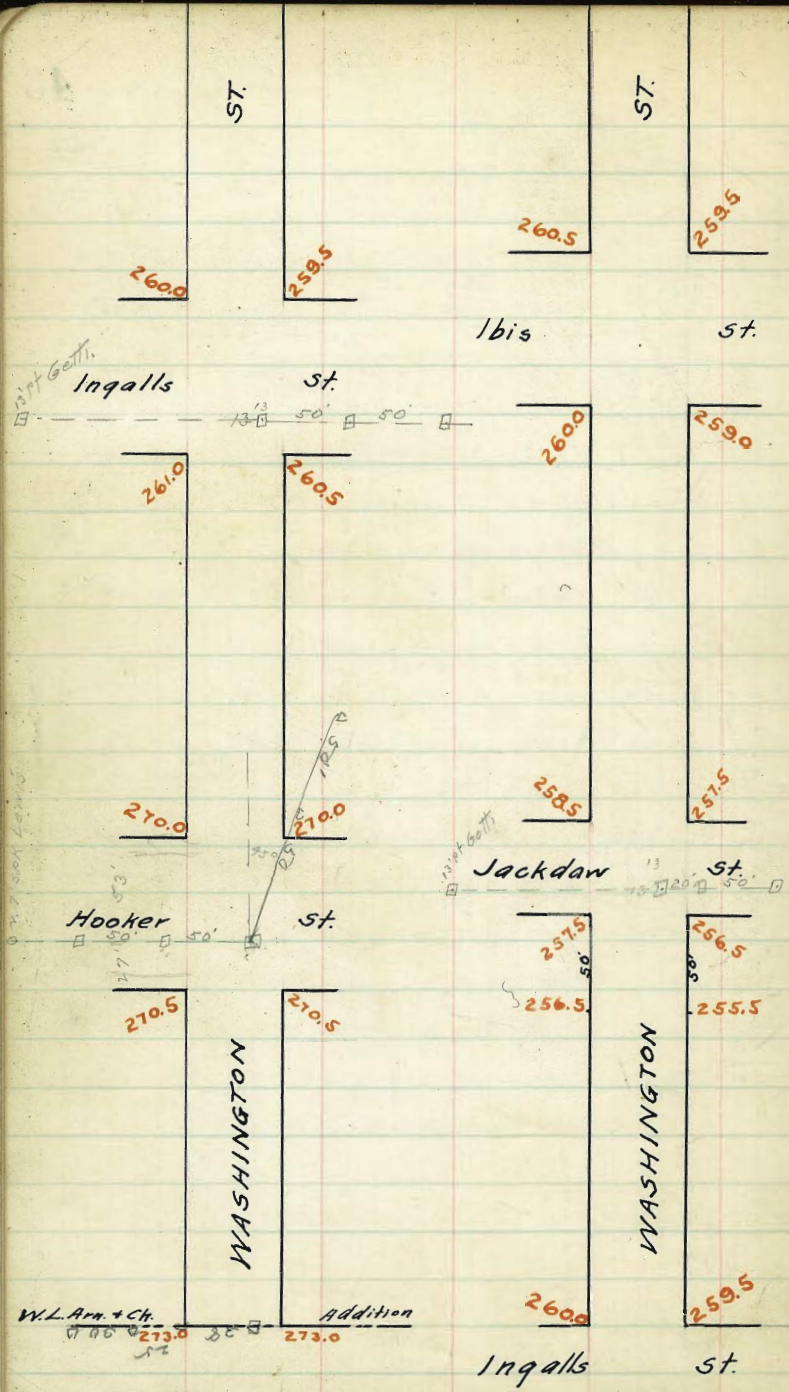 ST.
260.0 259.5
Ingalls St.
13 50' 50'
261.0 260.5
270.0 270.0
Hooker St.
53'
50' 50'
27'
270.5 270.5
WASHINGTON
W.L. Arn. + Ch. Addition
273.0 273.0
25
ST.
260.5 259.5
Ibis St.
260.0 259.0
258.5 257.5
Jackdaw St.
13 20' 50'
257.5 256.5
50' 50'
256.5 255.5
WASHINGTON
260.0 259.5
Ingalls St.